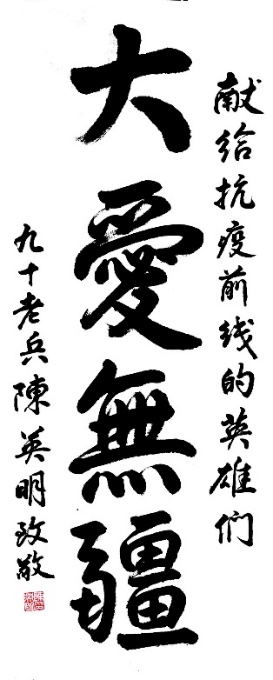 献给抗疫前线的英雄们
大愛無疆
九十老兵陳英明致敬